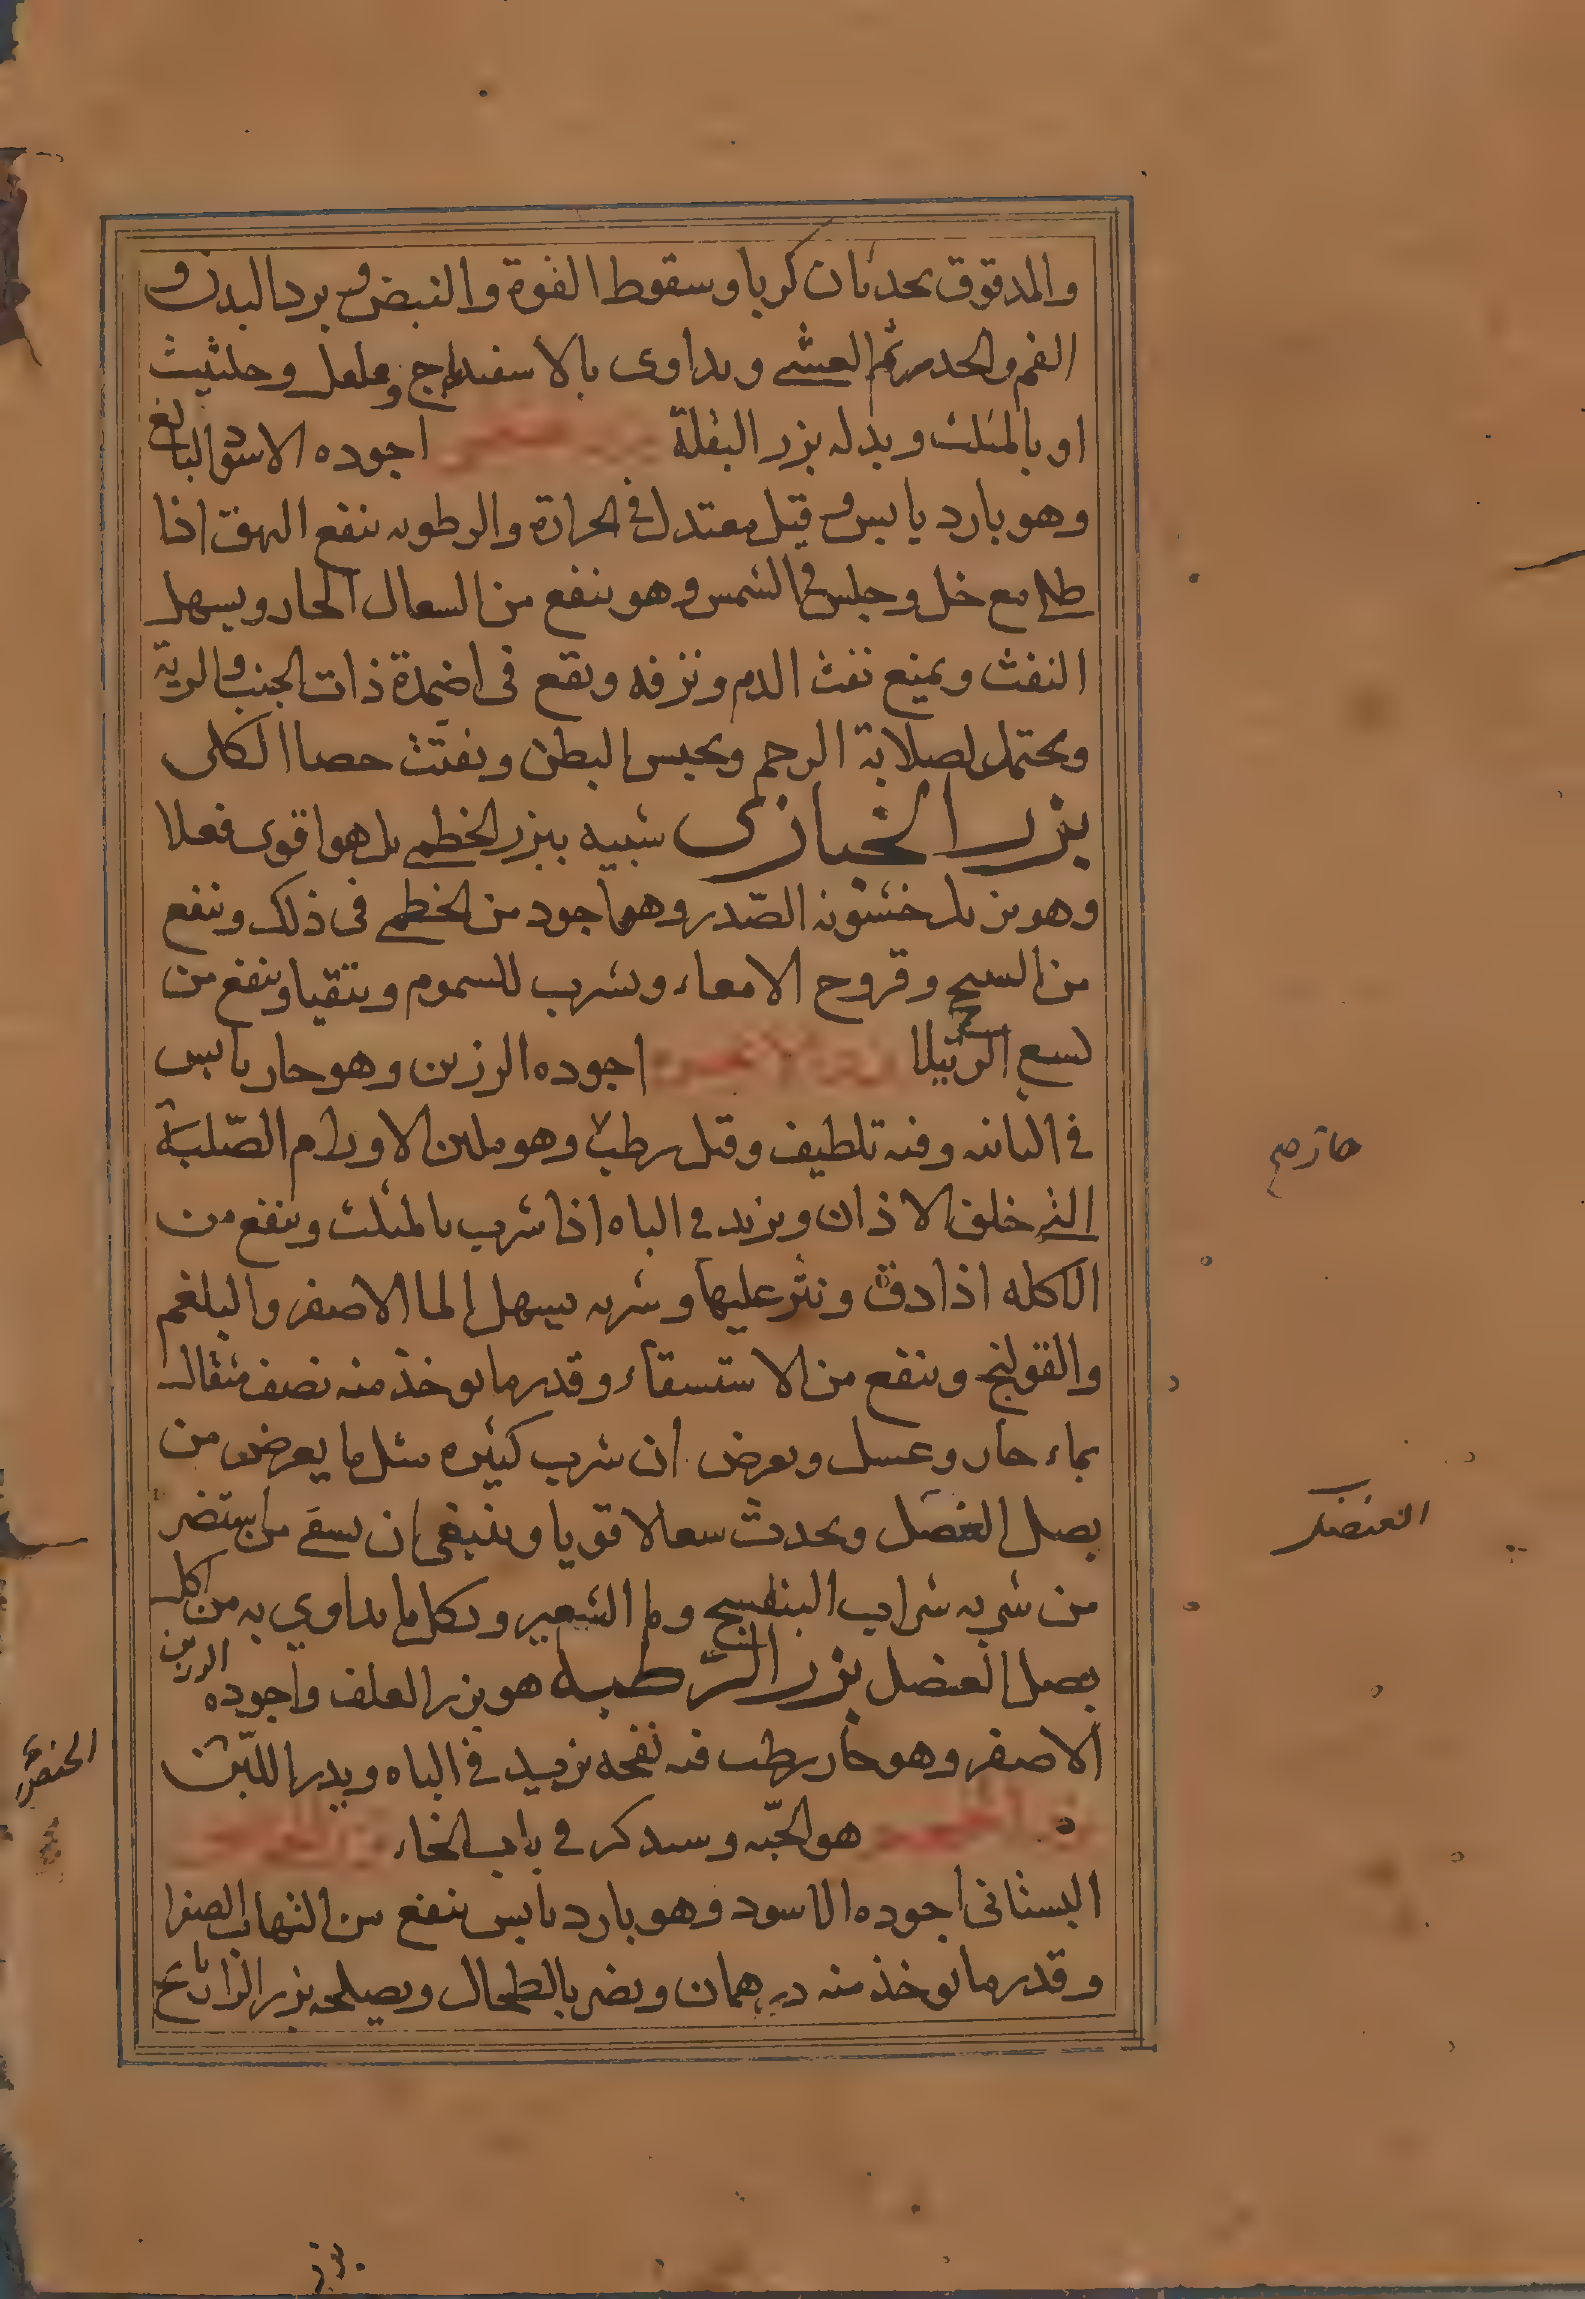 والمدقوق يحدثان كربا وسقوط القوة والنبض وبرد البدن و
الفم والخدر ثم الغشي ويداوى بالاسفيداج وفلفل وحلتيت
او بالمثلث وبدله بزر البقلة اجوده الاسود البالغ
وهو بارد يابس وقيل معتدل في الحرارة والرطوبه ينفع البهق اذا
طلي مع خل وجلس في الشمس وهو ينفع من السعال الحار ويسهل
النفث ويمنع نفث الدم ونزفه ويقع في اضمدة ذات الجنب والرية
ويحتمل لصلابة الرحم ويحبس البطن ويفتت حصا الكلى
بزر الخبازى شبيه ببزر الخطمي بل هو اقوى فعلا
وهو يزيل خشونه الصدر وهو اجود من الخطمي في ذلك وينفع
من السحج وقروح الامعاء ويشرب للسموم ويتقيا وينفع من
لسع الرتيلا اجوده الرزين وهو حار يابس
في الثانيه وفيه تلطيف وقيل رطب وهو يلين الاورام الصّلبة
التي خلف الاذان ويزيد في الباه اذا شرب بالمثلث وينفع من
الاكله اذا دق ونثر عليها وشربه يسهل الما الاصفر والبلغم
والقولنج وينفع من الاستسقاء وقدر ما يوخذ منه نصف مثقال
بماء حار وعسل ويعرض ان شرب كثيره مثل ما يعرض من
بصل العنصل ويحدث سعالا قويا وينبغي ان يسقى من استضر
من شربه شراب البنفسج وما الشعير وبكل ما يداوي به من اكل
بصل العنصل بزر الرّطبه هو بزر العلف واجوده الرزين
الاصفر وهو حار رطب فيه نفخه يزيد في الباه ويدر اللبن
هو الخبّه وسيذكر في باب الخاء
البستاني اجوده الاسود وهو بارد يابس ينفع من التهاب الصفرا
وقدر ما يوخذ منه درهمان ويضر بالطحال ويصلحه بزر الرازيانج
العنصل